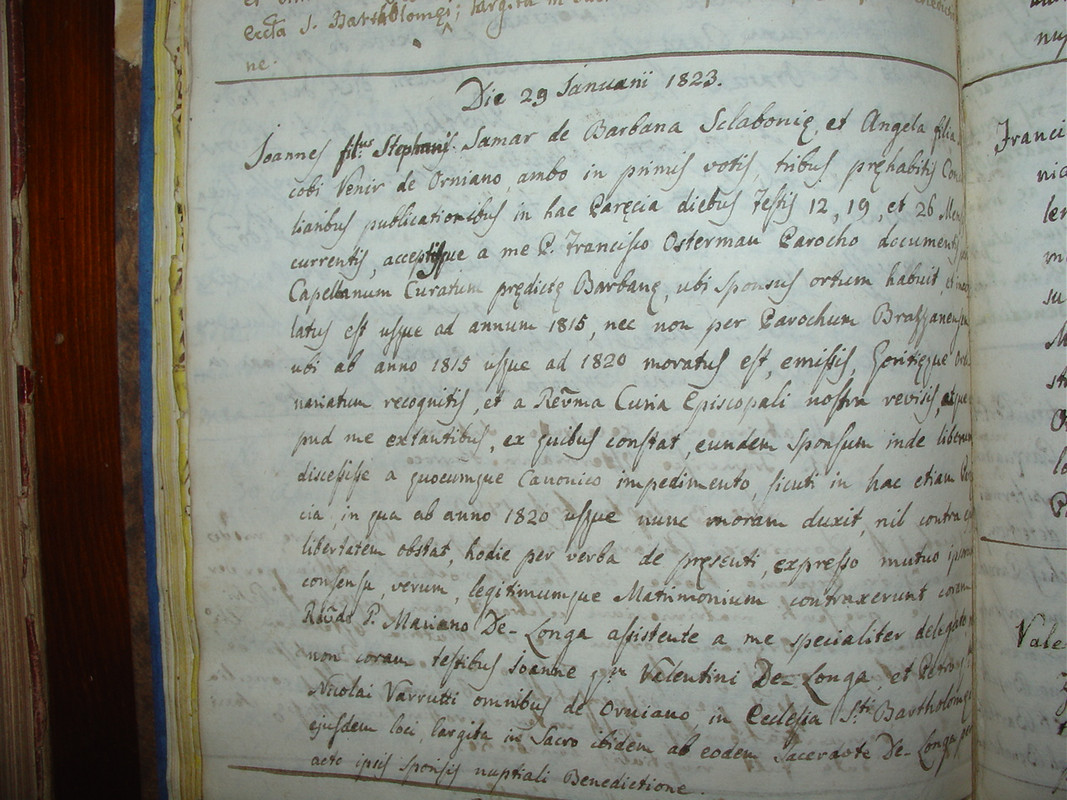 eccta S. Bartholomęi; largita in
ne.
Die 29 Januarii 1823.
Joannes fil.us Stephani Samar de Barbana Sclabonię, et Angela filia
cobi Venir de Orniano, ambo in primis votis, tribus pręhabitis Conci
liaribus publicationibus in hac Paręcia diebus Festis 12, 19, et 26 Mens
currentis, acceptisque a me P. Francisco Ostermau Parocho documentis
Capellanum Curatum prędictę Barbanę, ubi sponsus ortum habuit, et
latus est usque ad annum 1815, nec non per Parochum Brazzanensem
ubi ab anno 1815 usque ad 1820 moratus est, emissis, Goritięque Ordi
nariatum recognitis, et a Revma Curia Episcopali nostra revisis, atque
pud me extantibus, ex quibus constat, eundem Sponsum inde liberum
discessisse a quocumque Canonico impedimento, sicuti in hac etiam Parę
cia, in qua ab anno 1820 usque nunc moram duxit, nil contra
libertatem obstat, hodie per verba de pręsenti, expresso mutuo ipsorum
consensu, verum, legitimumque Matrimonium contraxerunt coram
Rvdo P. Mariano De-Longa assistente a me specialiter delegato
non coram testibus Joanne q.m Valentini De-Longa et Petro
Nicolai Varrutti omnibus de Orniano, in Ecclesia S.ti Bartholomęi
ejusdem loci, largita in Sacro ibidem ab eodem Sacerdote De-Longa per
acto ipsis sponsis nuptiali Benedictione.
Franci
nic
ler
su
M
st
Vale